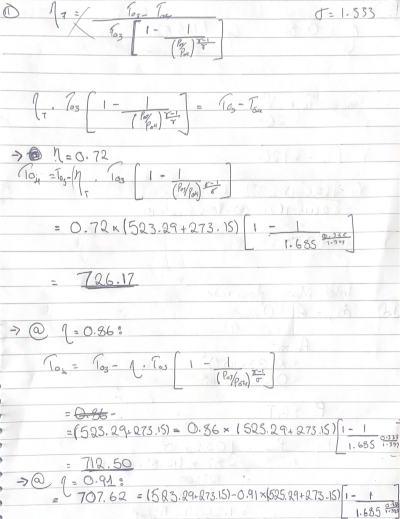 ① η_T = (T03 - T04) / (T03 [1 - 1/(P03/P04)^((γ-1)/γ)])    σ = 1.333
η_T · T03 [1 - 1/(P03/P04)^((γ-1)/γ)] = T03 - T04
→ @ η = 0.72
T04 = T03 - (η_T · T03 [1 - 1/(P03/P04)^((γ-1)/γ)]
= 0.72 × (523.29+273.15) [1 - 1/1.685^(0.333/1.333)]
= 726.17
→ @ η = 0.86:
T04 = T03 - η · T03 [1 - 1/(P03/P04)^((γ-1)/γ)]
= 0.86 -
= (523.29+273.15) - 0.86 × (523.29+273.15) [1 - 1/1.685^(0.333/1.333)]
= 712.50
→ @ η = 0.91:
= 707.62 = (523.29+273.15) - 0.91 × (523.29+273.15) [1 - 1/1.685^(0.333/1.333)]